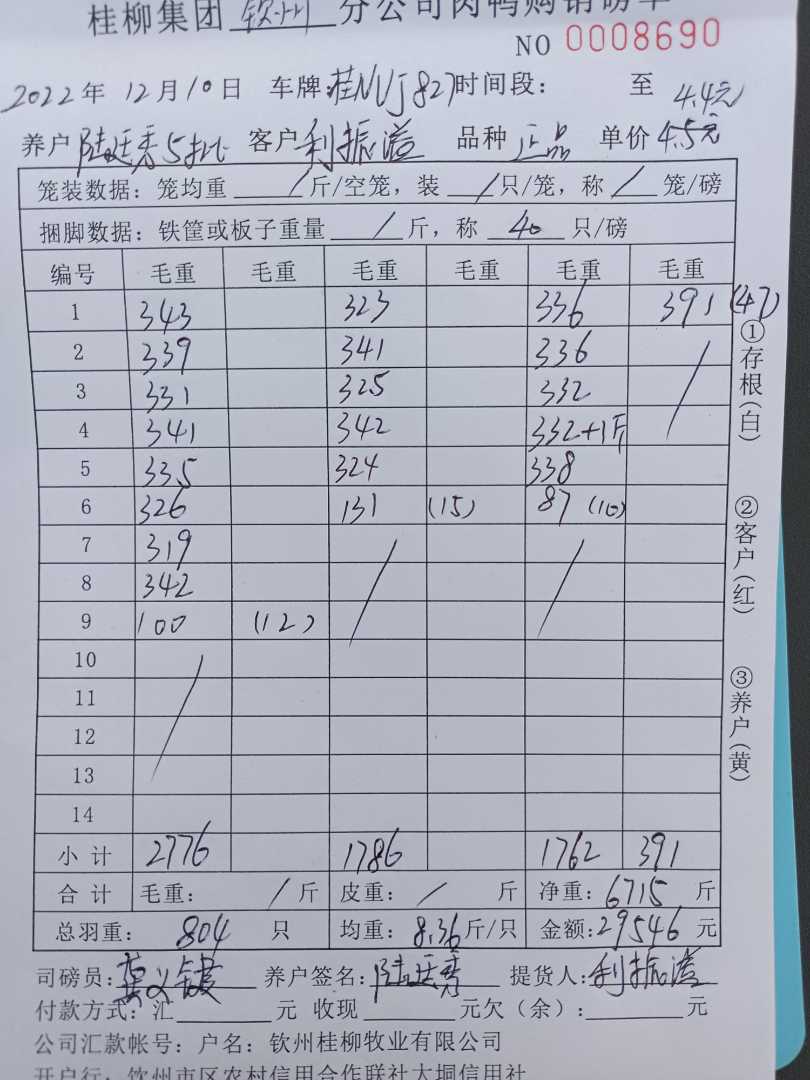 桂柳集团 钦州 分公司肉鸭购销磅单
NO 0008690
2022年 12月10日 车牌:桂NUJ827 时间段: 至 4.4元
养户 陆廷秀5批 客户 利振溢 品种 正品 单价 4.5元
笼装数据:笼均重 / 斤/空笼,装 / 只/笼,称 / 笼/磅
捆脚数据:铁筐或板子重量 / 斤,称 40 只/磅
编号 毛重 毛重 毛重 毛重 毛重 毛重
1 343 323 336 391 (47)
2 339 341 336 /
3 331 325 332
4 341 342 332+1斤
5 335 324 338
6 326 131 (15) 87 (10)
7 319 / /
8 342
9 100 (12)
10 /
11
12
13
14
小计 2776 1786 1762 391
合计 毛重: / 斤 皮重: / 斤 净重: 6715 斤
总羽重: 804 只 均重: 8.36斤/只 金额:29546 元
司磅员: 养户签名:陆廷秀 提货人:利振溢
付款方式:汇 元 收现 元欠(余): 元
公司汇款帐号:户名:钦州桂柳牧业有限公司
开户行:钦州市区农村信用合作联社大垌信用社
①存根(白)
②客户(红)
③养户(黄)